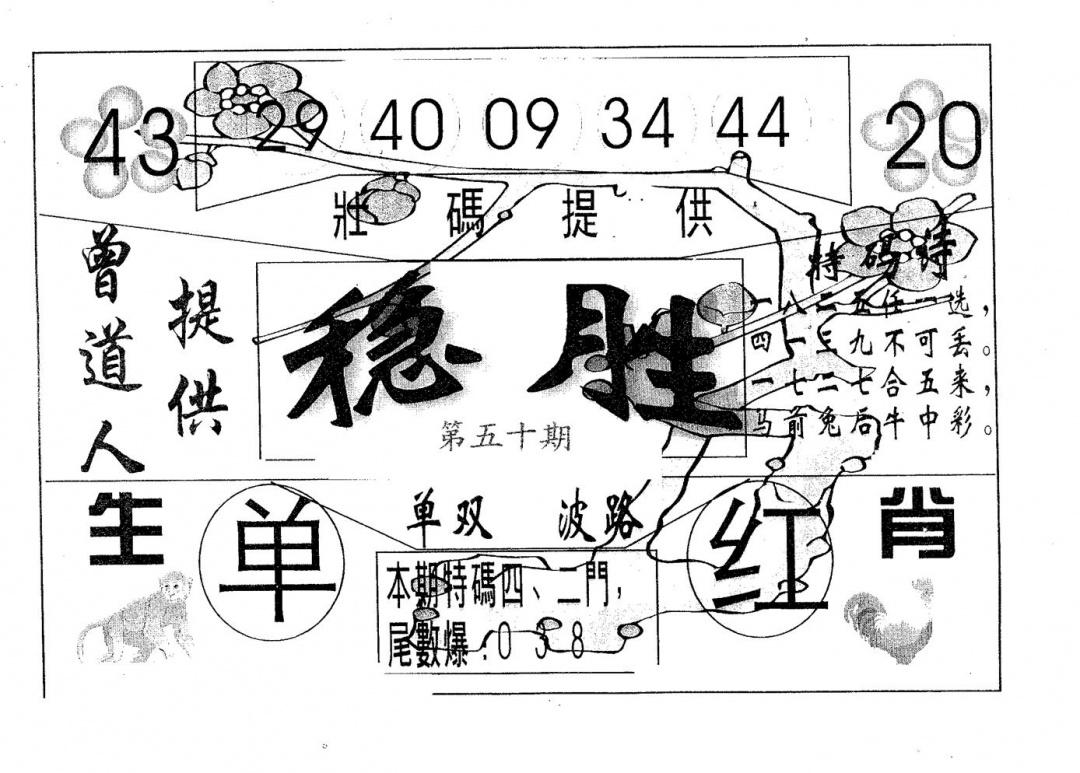 43 29 40 09 34 44 20
壯碼提供
曾道人
提供
稳胜
第五十期
特码诗
一八二五任一选，
四一三九不可丢。
一七二七合五来，
马前兔后牛中彩。
生
肖
单双 波路
单
红
本期特碼四、二門，
尾數爆：0 3 8